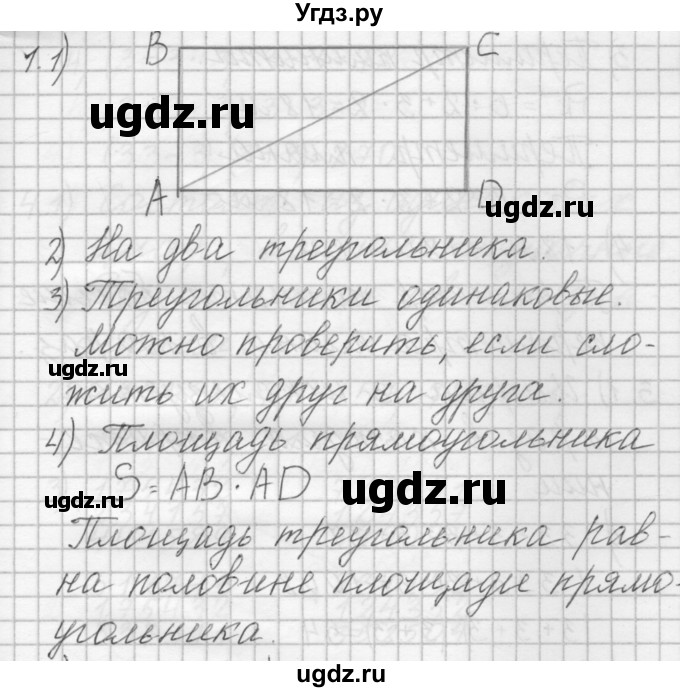 Угдз.ру
1.1) B C
ugdz.ru
A D
ugdz.ru
2) На два треугольника.
3) Треугольники одинаковые.
Можно проверить, если сло-
ugdz.ru
жить их друг на друга.
4) Площадь прямоугольника
S = AB · AD
ugdz.ru
ugdz.ru
Площадь треугольника рав-
на половине площади прямо-
угольника.
ugdz.ru